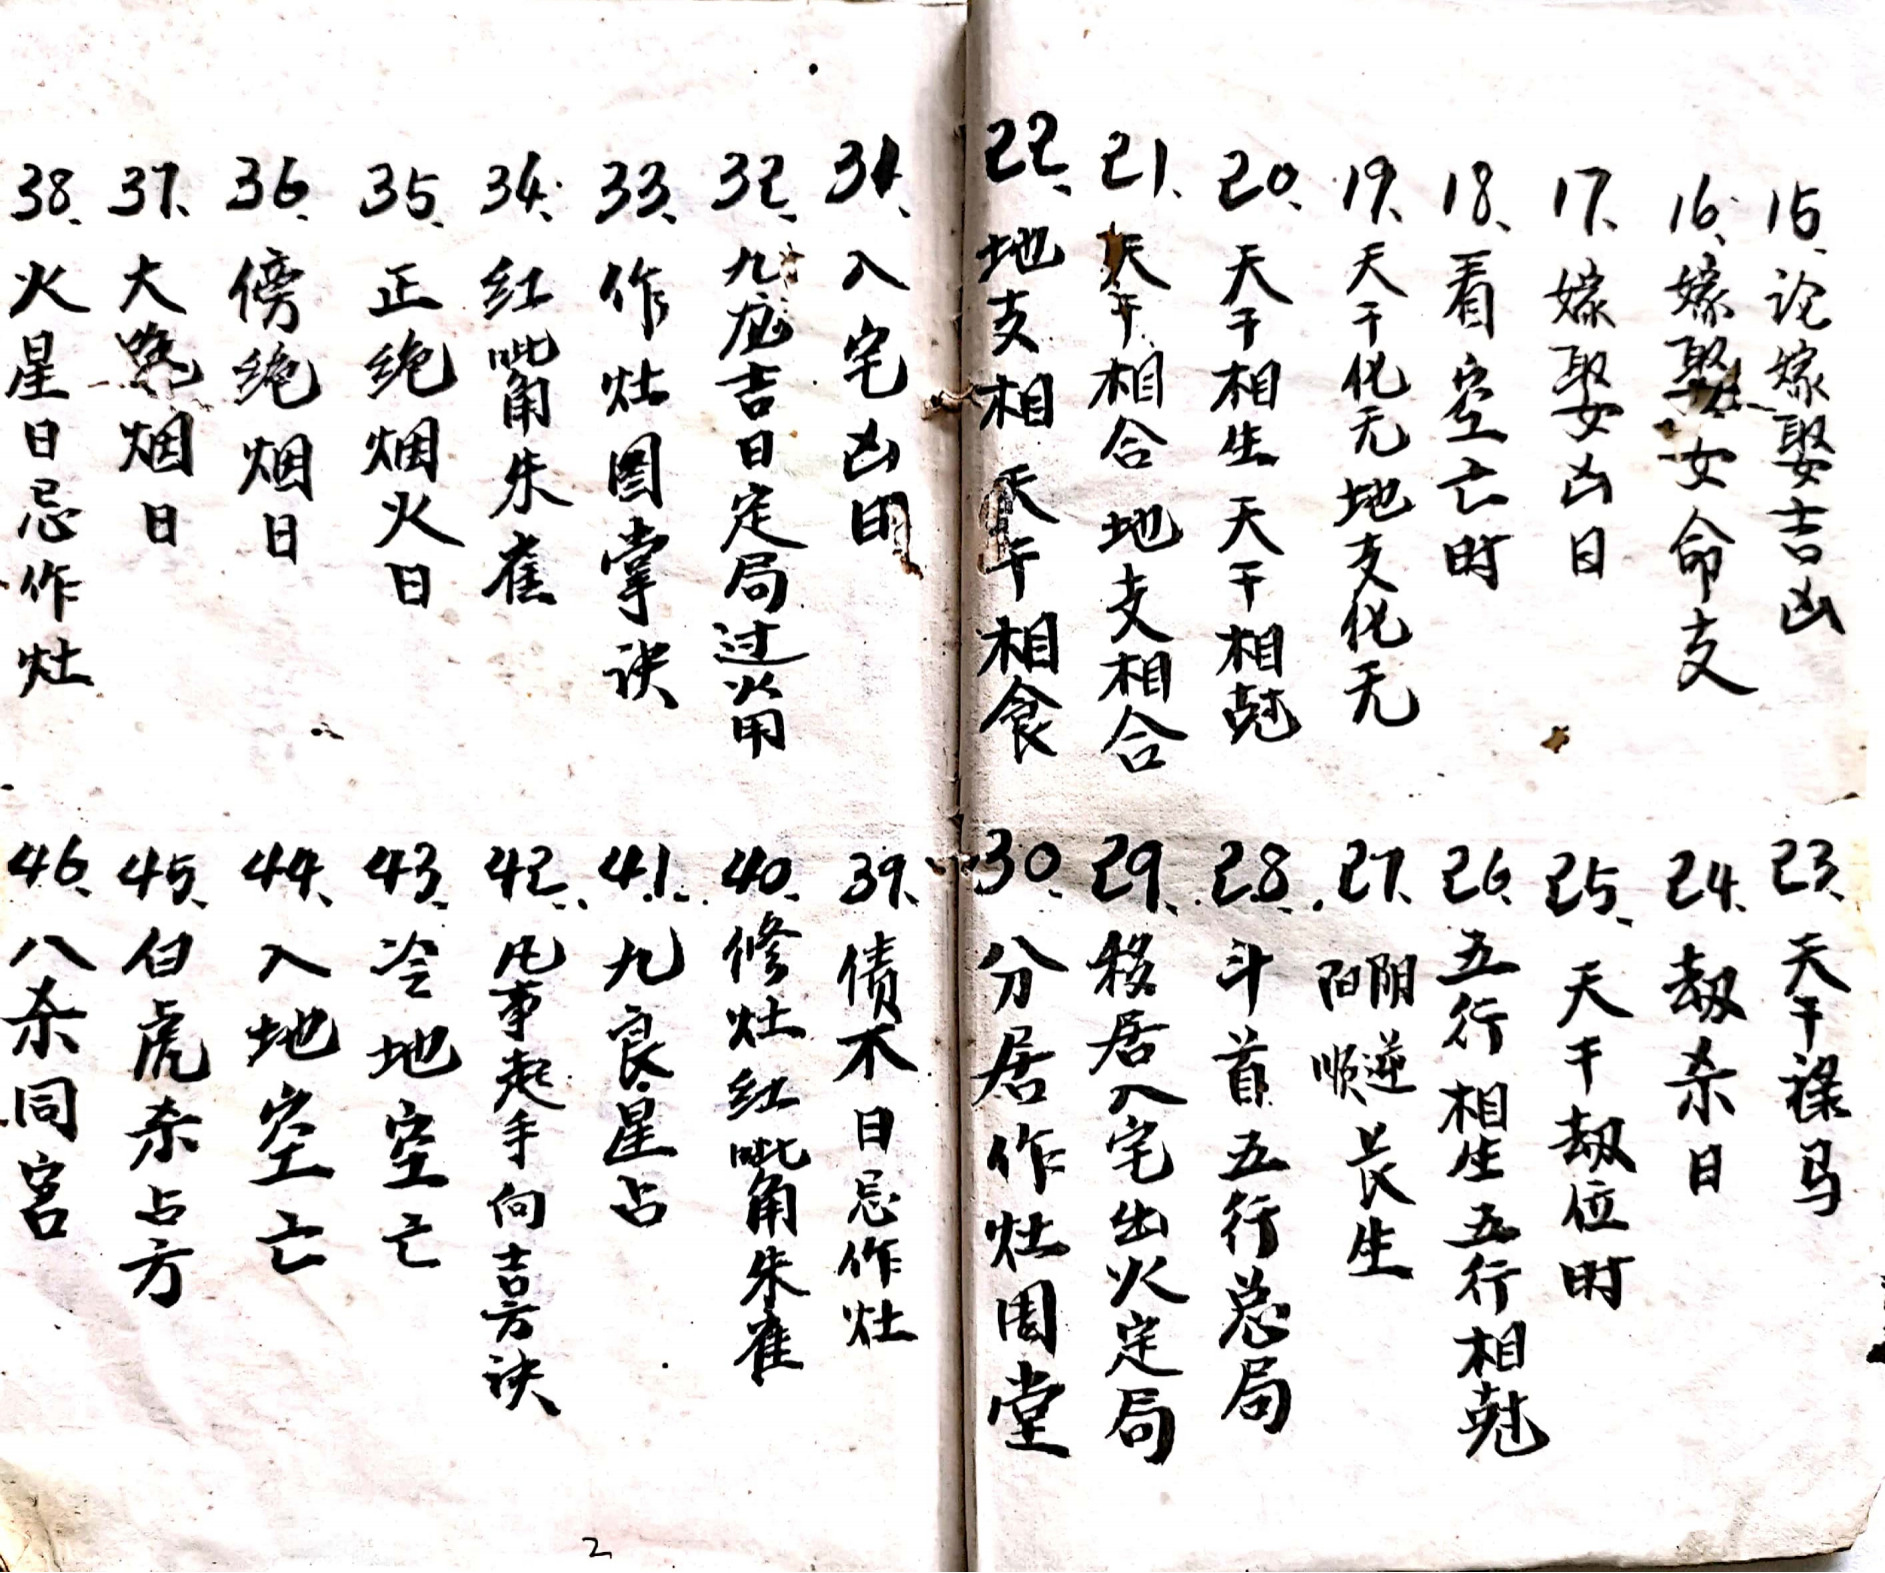 15、论嫁娶吉凶
16、嫁娶女命支
17、嫁娶凶日
18、看空亡时
19、天干化无地支化无
20、天干相生天干相尅
21、天干相合地支相合
22、地支相天干相食
23、天干禄马
24、劫杀日
25、天干劫位时
26、五行相生五行相尅
27、阴逆阳顺长生
28、斗首五行总局
29、移居入宅出火定局
30、分居作灶周堂
31、入宅凶日
32、九龙吉日定局过火用
33、作灶图掌诀
34、红呲角朱雀
35、正绝烟火日
36、傍绝烟日
37、大烟日
38、火星日忌作灶
39、债不日忌作灶
40、修灶红呲角朱雀
41、九良星占
42、凡事起手向吉方诀
43、冷地空亡
44、入地空亡
45、白虎杀占方
46、八杀同宫
2